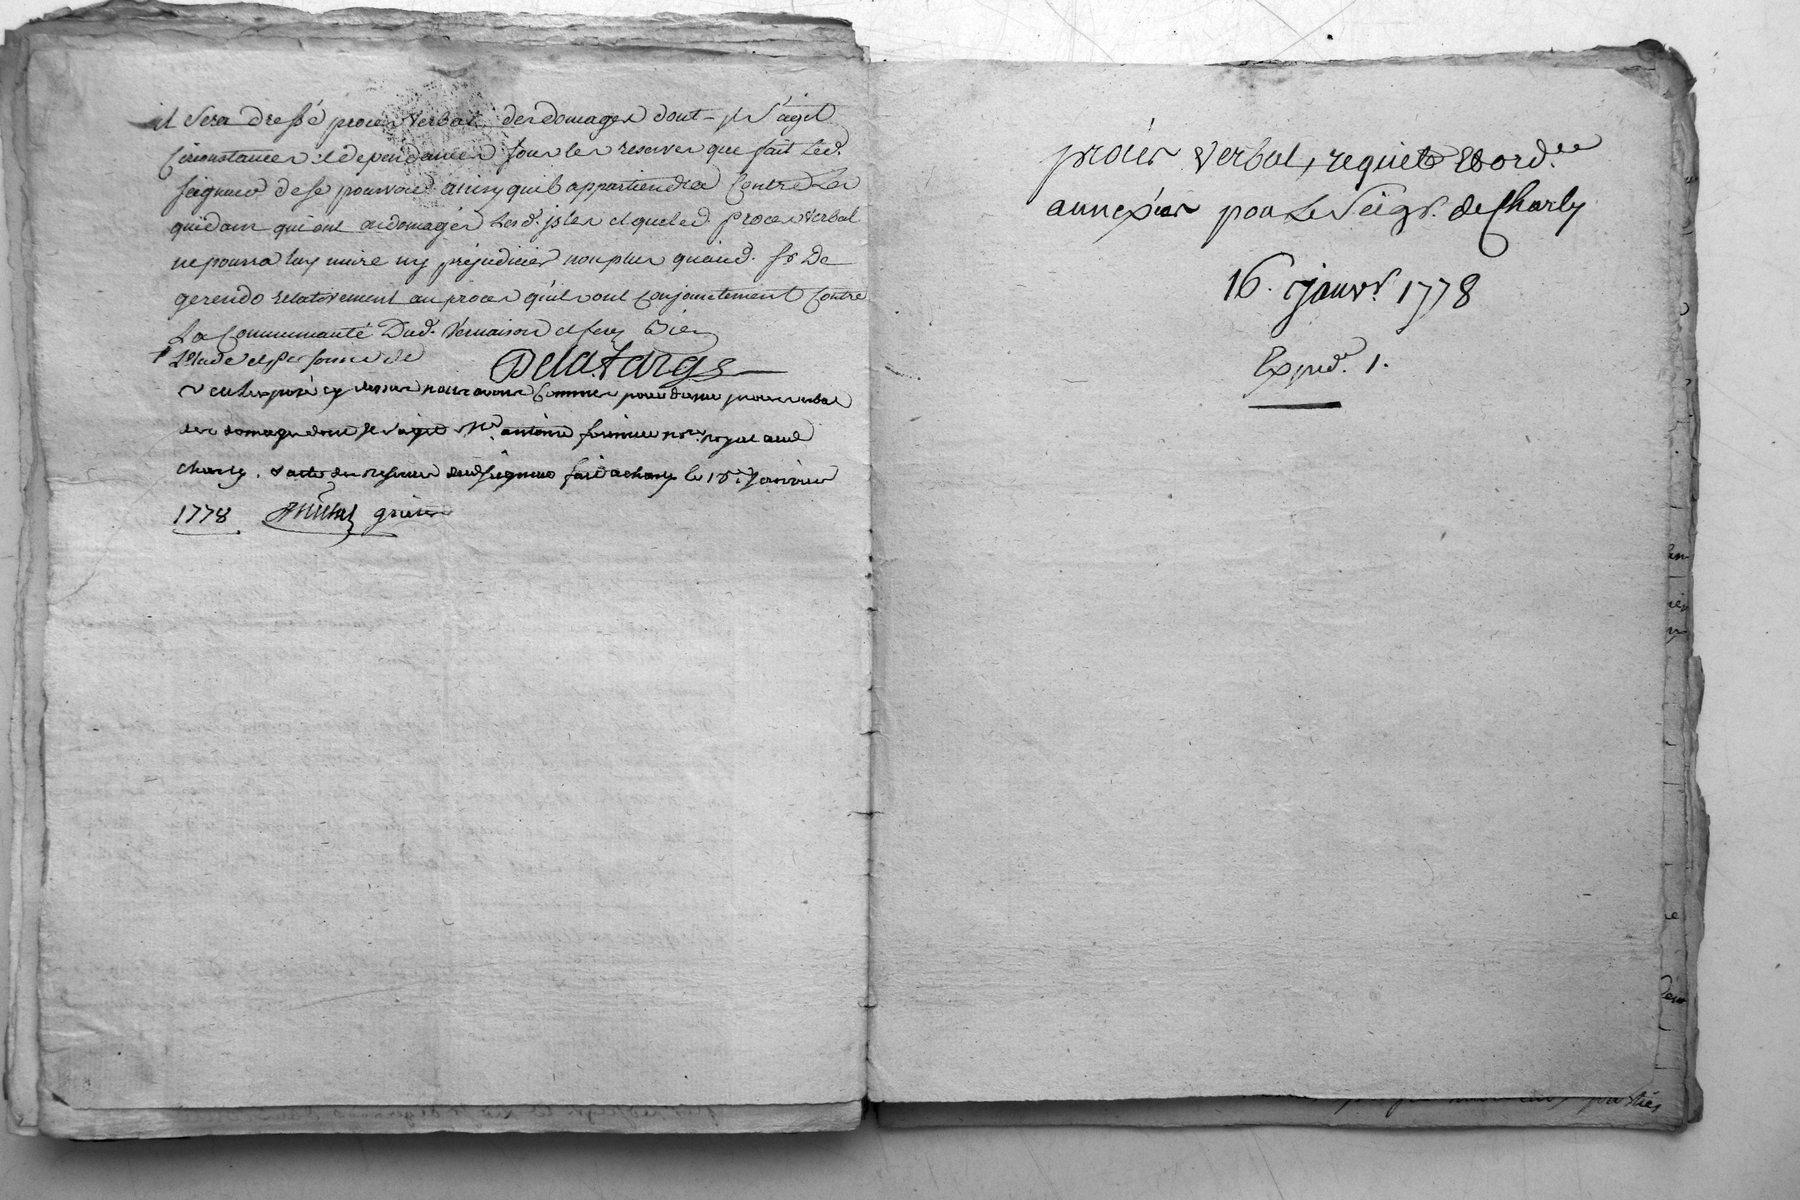 il sera dressé procès verbal des domages dont il s'agit
circonstances et dependances sous les reserves que fait led.
seigneur de se pourvoir ainsy quil appartiendra contre les
quidam qui ont adomagés lesd. isles et que led. proces verbal
ne pourra luy nuire ny prejudicier non plus quaud. sr De
gerendo relativement au proces quils ont conjointement contre
La Communauté Dud. Vernaison et ferez bien
Delafarge
veu lexposé cy dessus nous avons commis pour dresser proces verbal
des domages dont il s'agit Me. antoine notre royal aud
charly . acte des reserves dud seigneur fait a charly le 16e. Janvier
1778
procès verbal, requete et ord.ce
annexées pour Le Seigr. de Charly
16. janvr. 1778
Exped. 1.